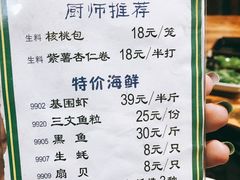 厨师推荐
生料 核桃包 18元/笼
生料 紫薯杏仁卷 18元/半打
特价海鲜
9902 基围虾 39元/半斤
9920 三文鱼粒 25元/份
9905 黑鱼 30元/斤
9907 生蚝 8元/只
9909 扇贝 8元/只